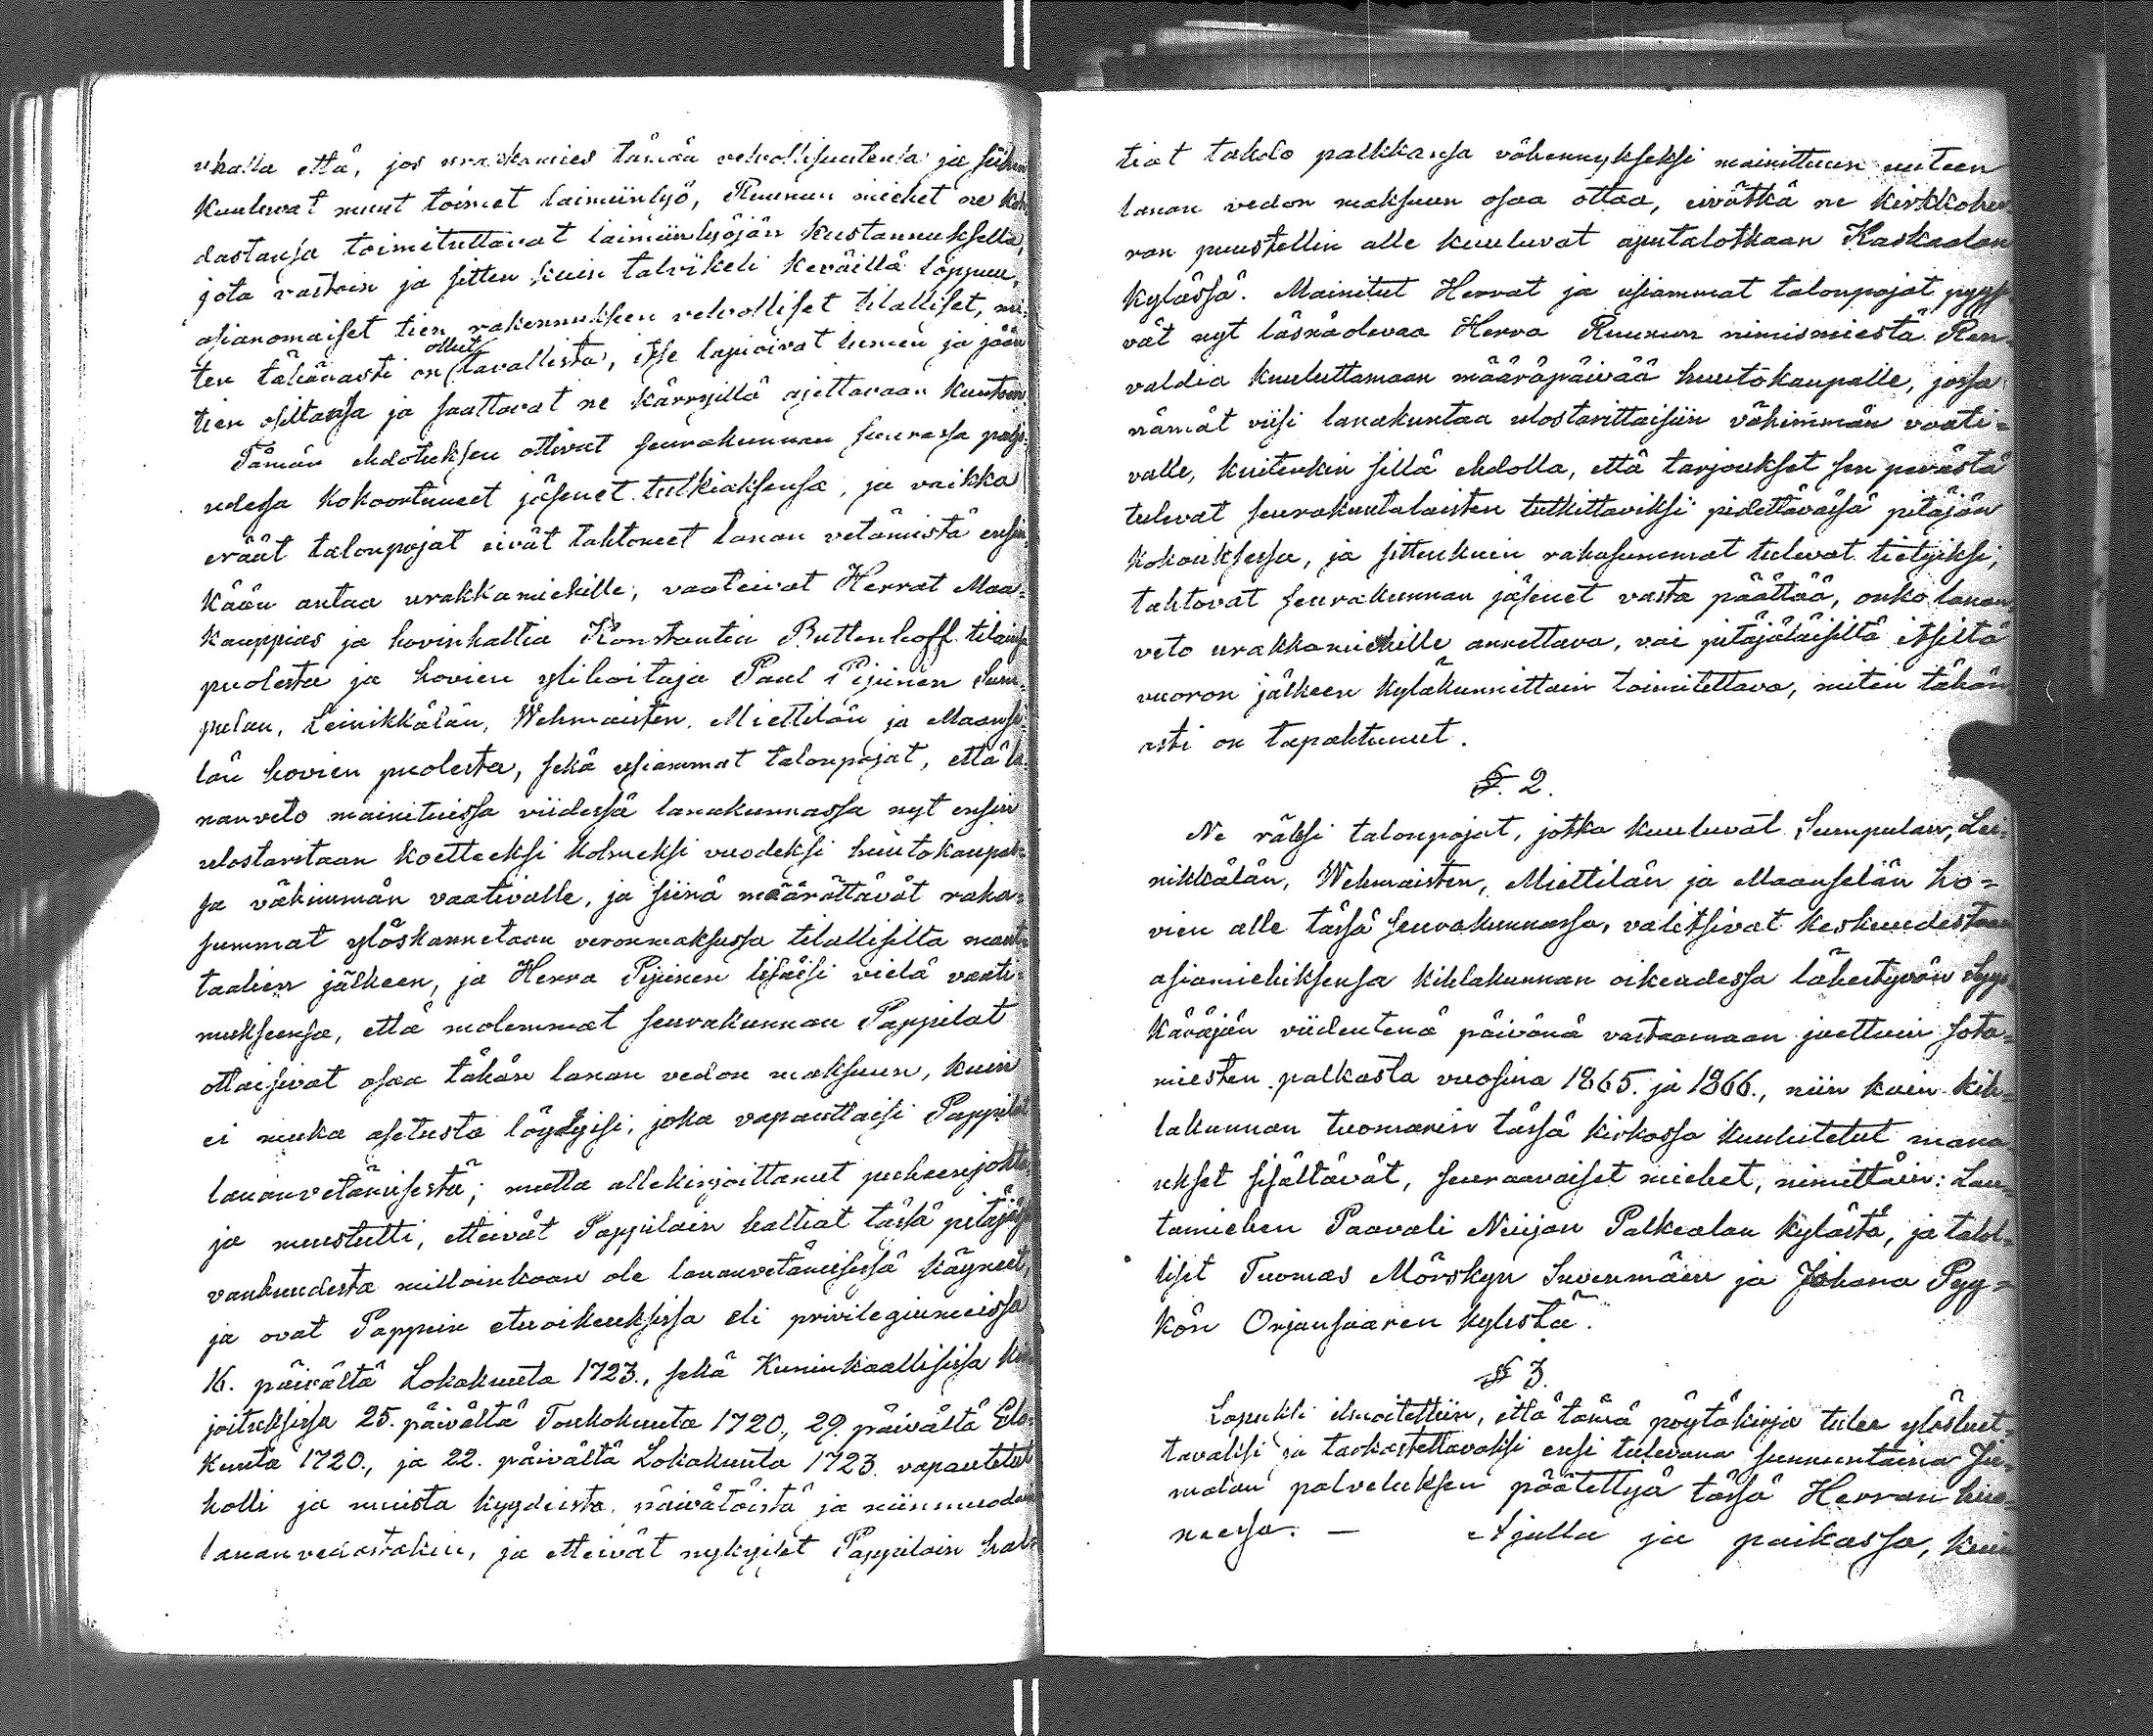 uhalla että, jos urakkamies tämän velvollisuutensa ja siihen
kuuluvat muut toimet laiminlyö, Ruunun miehet ne koh-
dastansa toimituttavat laiminlyöjän kustannuksella,
jota vastoin ja sitten kuin talvikeli keväillä loppuu,
asianomaiset tien rakennuksen velvolliset tilalliset, mi-
ten tähänasti on ollut tavallista, itse lapioivat lumen ja jään
tien osiltansa ja saattavat ne kärryillä ajettavaan kuntoon.
Tämän ehdotuksen ottivat seurakunnan suuressa paljo-
udessa kokoontuneet jäsenet tutkiaksensa, ja vaikka
eräät talonpojat eivät tahtoneet lanan vetämistä ensin-
kään antaa urakkamiehille, vaativat Herrat Maa-
kauppias ja hovinhaltia Konstantin Buttenhoff tilainsa
puolesta ja hovien ylihoitaja Paul Pijinen Sum-
pulan, Leinikkälän, Wehmaisten, Miettilän ja Maanse-
län hovien puolesta, sekä usiammat talonpojat, että la-
nanveto mainituissa viidessä lanakunnassa nyt ensin
ulostaritaan koetteeksi kolmeksi vuodeksi huutokaupas-
sa vähimmän vaativalle, ja siinä määrättävät raha-
summat ylöskannetaan veronmaksussa tilallisilta mant-
taalien jälkeen, ja Herra Pijinen lisäisi vielä vaati-
mukseensa, että molemmat seurakunnan Pappilat
ottaisivat osaa tähän lanan vedon maksuun, kuin
ei muka asetusta löydyisi, joka vapauttaisi Pappilat
lananvetämisestä; mutta allekirjoittanut puheenjohta-
ja muistutti, etteivät Pappilain haltiat tässä pitäjässä
vanhuudesta milloinkaan ole lananvetämisessä käyneet,
ja ovat Pappein etuoikeuksissa eli privilegiumeissa
16. päivältä Lokakuuta 1723., sekä Kuninkaallisissa kir-
joituksissa 25. päivältä Toukokuuta 1720., 29. päivältä Elo-
kuuta 1720., ja 22. päivältä Lokakuuta 1723. vapautetut
holli ja muista kyydeistä, päivätöistä ja niinmuodoin
lananvedostakin, ja etteivät nykyiset Pappilain hal-
tiat tahdo palkkansa vähennykseksi mainittuun uuteen
lanan vedon maksuun osaa ottaa, eivätkä ne kirkkoher-
ran puustellin alle kuuluvat aputalotkaan Kaskaalan
kylässä. Mainitut Herrat ja usiammat talonpojat pyysi-
vät nyt läsnäolevaa Herra Ruunun nimismiestä Ren-
valdia kuuluttamaan määräpäivää huutokaupalle, jossa
nämät viisi lanakuntaa ulostarittaisiin vähimmän vaati-
valle, kuitenkin sillä ehdolla, että tarjoukset sen perästä
tulevat seurakuntalaisten tutkittaviksi pidettävässä pitäjän
kokouksessa, ja sittenkuin rahasummat tulevat tietyiksi,
tahtovat seurakunnan jäsenet vasta päättää, onko lanan
veto urakkamiehille annettava, vai pitäjäläisiltä itsiltä
vuoron jälkeen kyläkunnittain toimitettava, miten tähän
asti on tapahtunut.
§. 2.
Ne räksi talonpojat, jotka kuuluvat Sumpulan, Lei-
nikkälän, Wehmaisten, Miettilän ja Maanselän ho-
vien alle tässä seurakunnassa, valitsivat keskuudestaan
asiamiehiksensä kihlakunnan oikeudessa lähestyvän Syys
Käräjän viidentenä päivänä vastaamaan juettuin sota-
miesten palkasta vuosina 1865. ja 1866., niin kuin kih-
lakunnan tuomarin tässä kirkossa kuulutetut mana-
ukset sisältävät, seuraavaiset miehet, nimittäin: Lau-
tamiehen Paavali Nuijan Palkealan kylästä, ja talol-
liset Tuomas Mörskyn Suvenmäen ja Johana Pyy-
kön Orjansaaren kylästä.
§ 3.
Lopuksi ilmoitettiin, että tämä pöytäkirja tulee ylösluet-
tavaksi ja tarkastettavaksi ensi tulevana sunnuntaina Ju-
malan palveluksen päätettyä tässä Herran huo-
neessa. — Ajalla ja paikassa, kuin